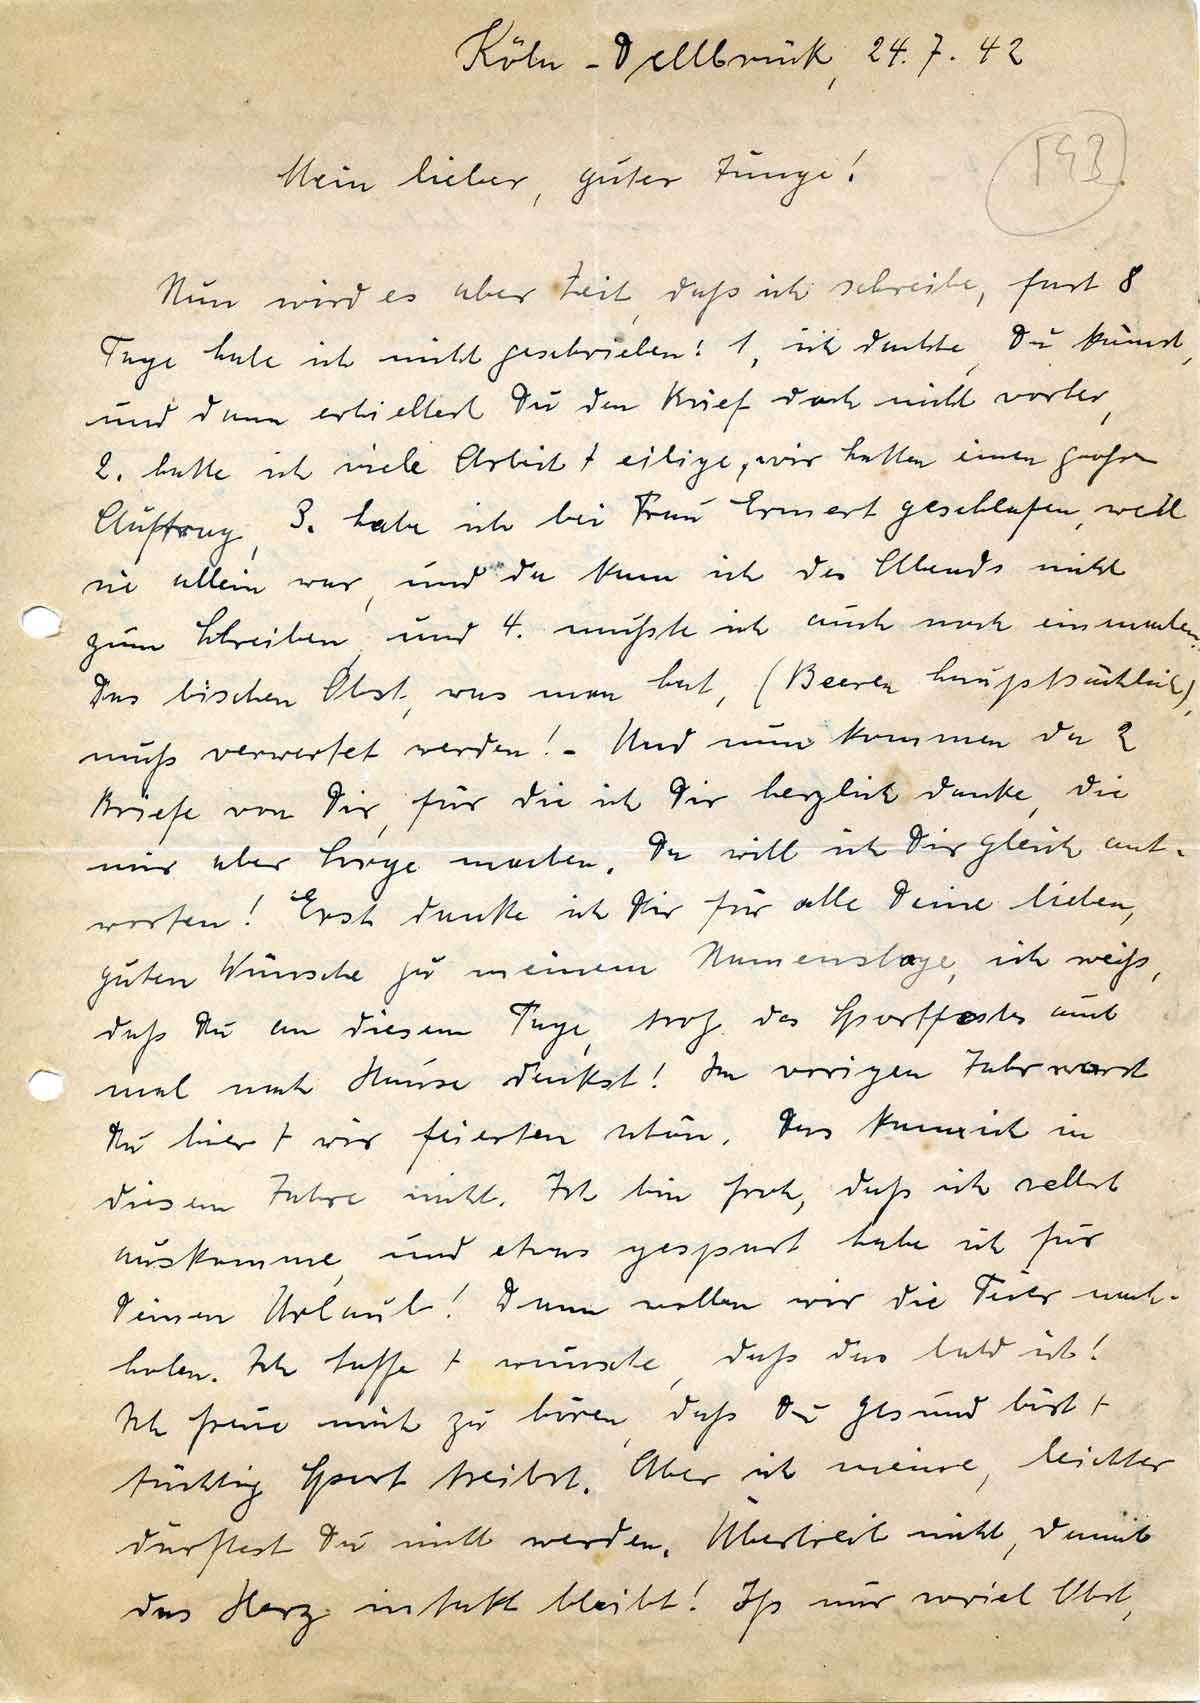 Köln-Dellbrück, 24.7.42
193
Mein lieber, guter Junge!
Nun wird es aber Zeit, daß ich schreibe, fast 8
Tage habe ich nicht geschrieben! 1, ich dachte, Du kämst,
und dann erhieltest Du den Brief doch nicht vorher,
2. hatte ich viele Arbeit + eilige, wir hatten einen großen
Auftrag, 3. habe ich bei Frau Ermert geschlafen, weil
sie allein war, und da kam ich des Abends nicht
zum Schreiben und 4. mußte ich auch noch einmachen.
Das bischen Obst, was man hat, (Beeren hauptsächlich),
muß verwertet werden! - Und nun kommen da 2
Briefe von Dir, für die ich Dir herzlich danke, die
mir aber Sorge machen. Da will ich Dir gleich ant-
worten! Erst danke ich Dir für alle Deine lieben,
guten Wünsche zu meinem Namenstage, ich weiß,
daß Du an diesem Tage, trotz des Sportfestes auch
mal nach Hause denkst! Im vorigen Jahr warst
Du hier + wir feierten schön. Das kann ich in
diesem Jahre nicht. Ich bin froh, daß ich selbst
auskomme, und etwas gespart habe ich für
Deinen Urlaub! Dann wollen wir die Feier nach-
holen. Ich hoffe + wünsche, daß das bald ist!
Ich freue mich zu hören, daß Du gesund bist +
tüchtig Sport treibst. Aber ich meine, leichter
dürftest Du nicht werden. Übertreib nicht, damit
das Herz intakt bleibt! Iß nur soviel Obst,